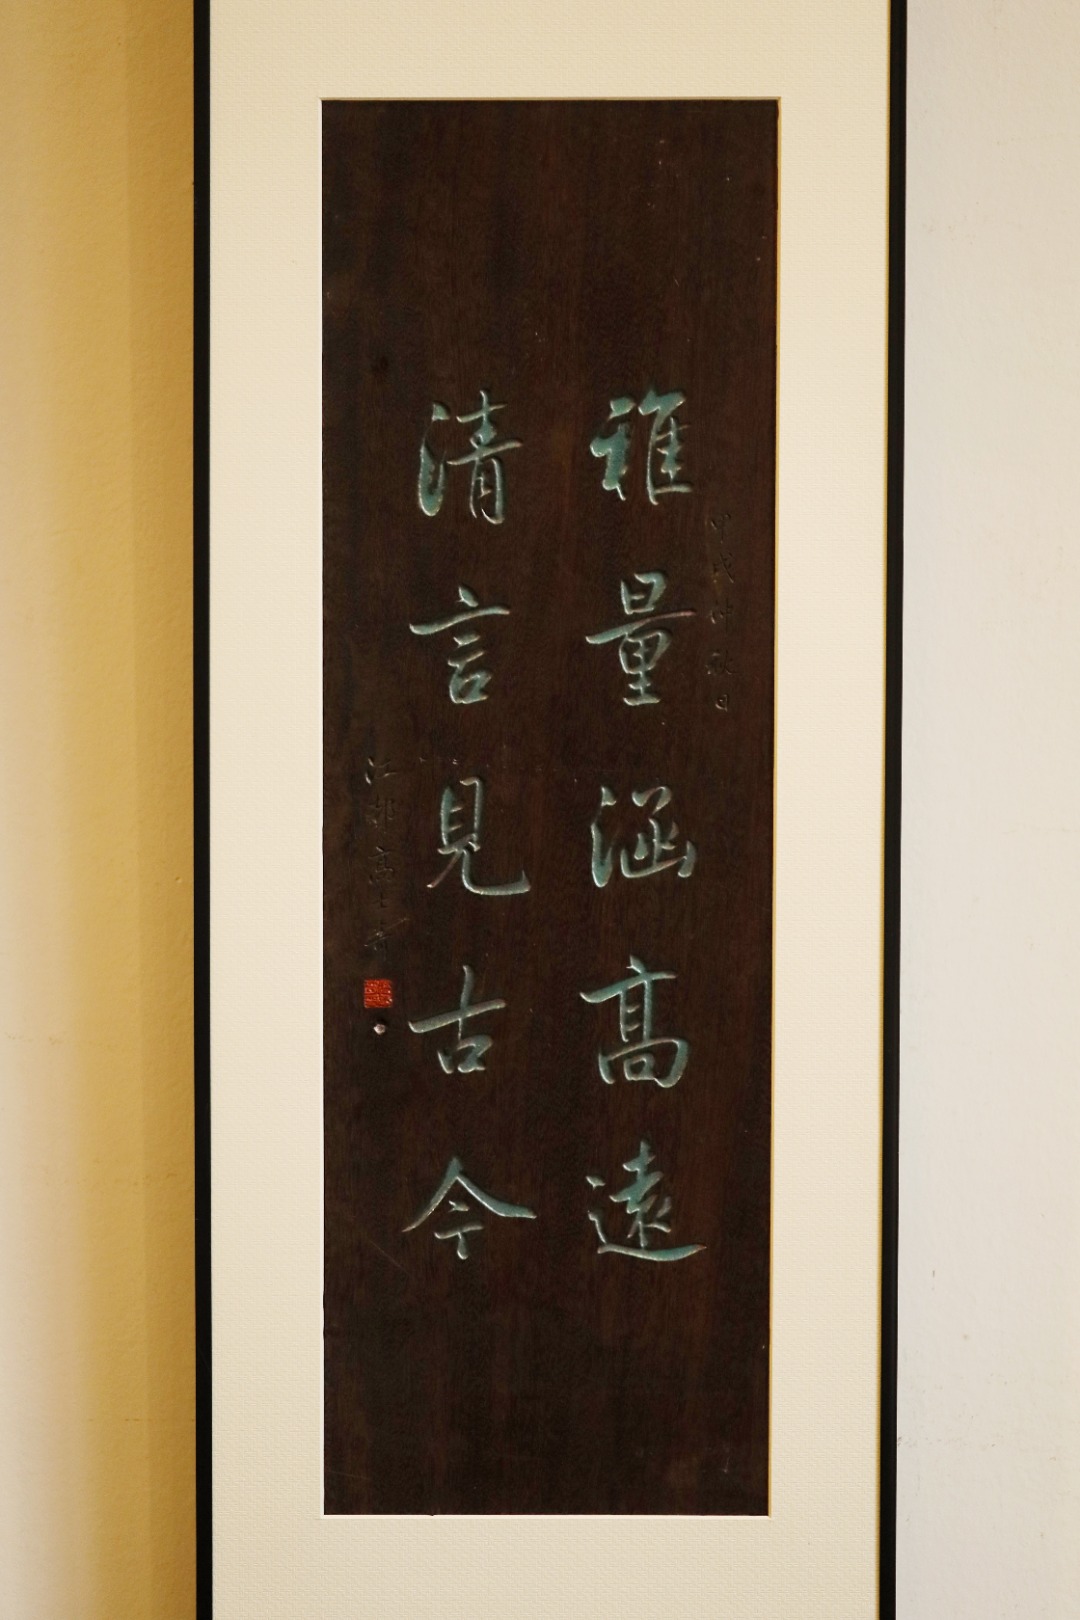 甲戌仲秋日
雅量涵高遠
清言見古今
江都高士奇